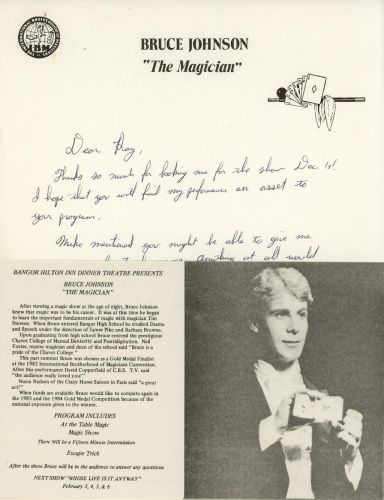 IBM
BRUCE JOHNSON
"The Magician"
Dear Ray,
Thanks so much for booking me for the show Dec 1st!
I hope that you will find my performance an asset to
your program.
Mike mentioned you might be able to give me
anything at all would
BANGOR HILTON INN DINNER THEATRE PRESENTS
BRUCE JOHNSON
"THE MAGICIAN"
After viewing a magic show at the age of eight, Bruce Johnson
knew that magic was to be his career. It was at this time he began
to learn the important fundamentals of magic with magician Tim
Stevens. When Bruce entered Bangor High School he studied Drama
and Speech under the direction of James Pike and Barbara Brown.
Upon graduating from high school Bruce entered the prestigious
Chavez College of Manual Dexterity and Prestidigitation. Neil
Foster, master magician and dean of the school said "Bruce is a
pride of the Chavez College."
This past summer Bruce was chosen as a Gold Medal Finalist
at the 1982 International Brotherhood of Magicians Convention.
After this performance David Copperfield of C.B.S. T.V. said
"the audience really loved you!"
Norm Nielsen of the Crazy Horse Saloon in Paris said "a great
act!"
When funds are available Bruce would like to compete again in
the 1983 and 1984 Gold Medal Competition because of the
national exposure given to the winner.
PROGRAM INCLUDES
At the Table Magic
Magic Show
There Will be a Fifteen Minute Intermission
Escape Trick
After the show Bruce will be in the audience to answer any questions.
NEXT SHOW "WHOSE LIFE IS IT ANYWAY"
February 3, 4, 5, & 6